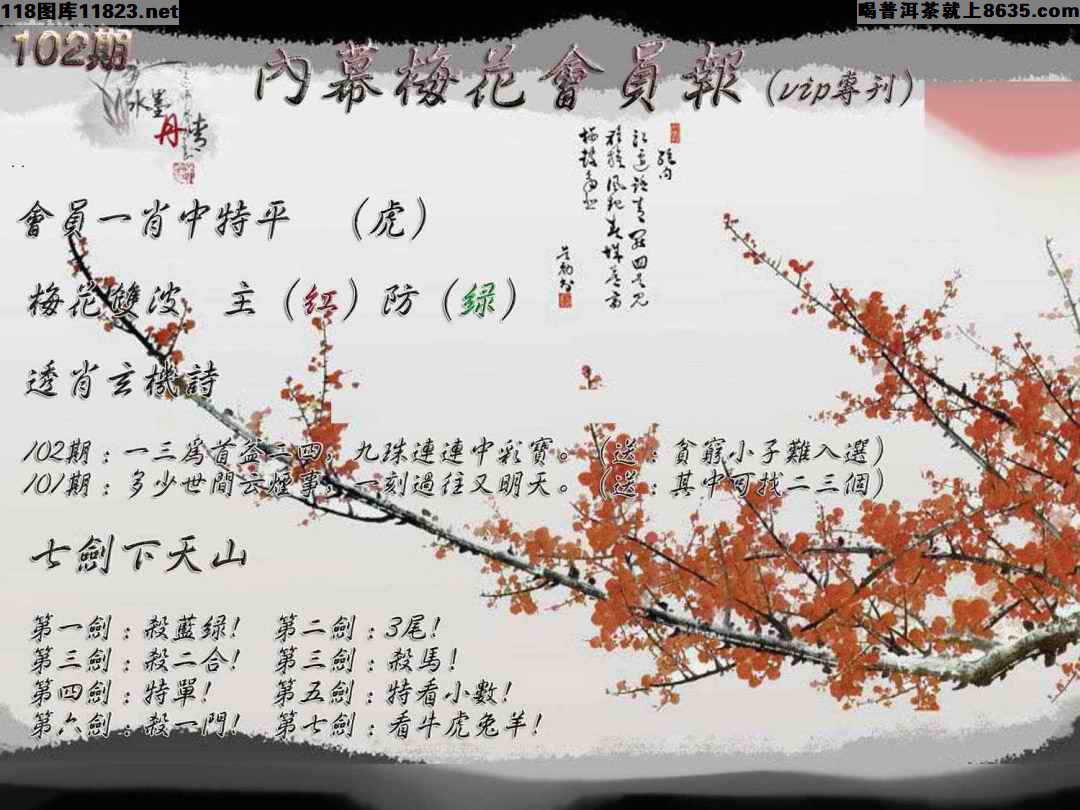 118图库11823.net
喝普洱茶就上8635.com
102期
內幕梅花會員報(vip專刊)
水墨
丹青
會員一肖中特平 （虎）
梅花雙波 主（红）防（绿）
透肖玄機詩
102期：一三爲首益二四，九珠連連中彩寶。（送：貧窮小子難入選）
101期：多少世間云煙事，一刻過往又明天。（送：其中可找二三個）
七劍下天山
第一劍：殺藍绿! 第二劍：3尾!
第三劍：殺二合! 第三劍：殺馬!
第四劍：特單! 第五劍：特看小數!
第六劍：殺一門! 第七劍：看牛虎兔羊!